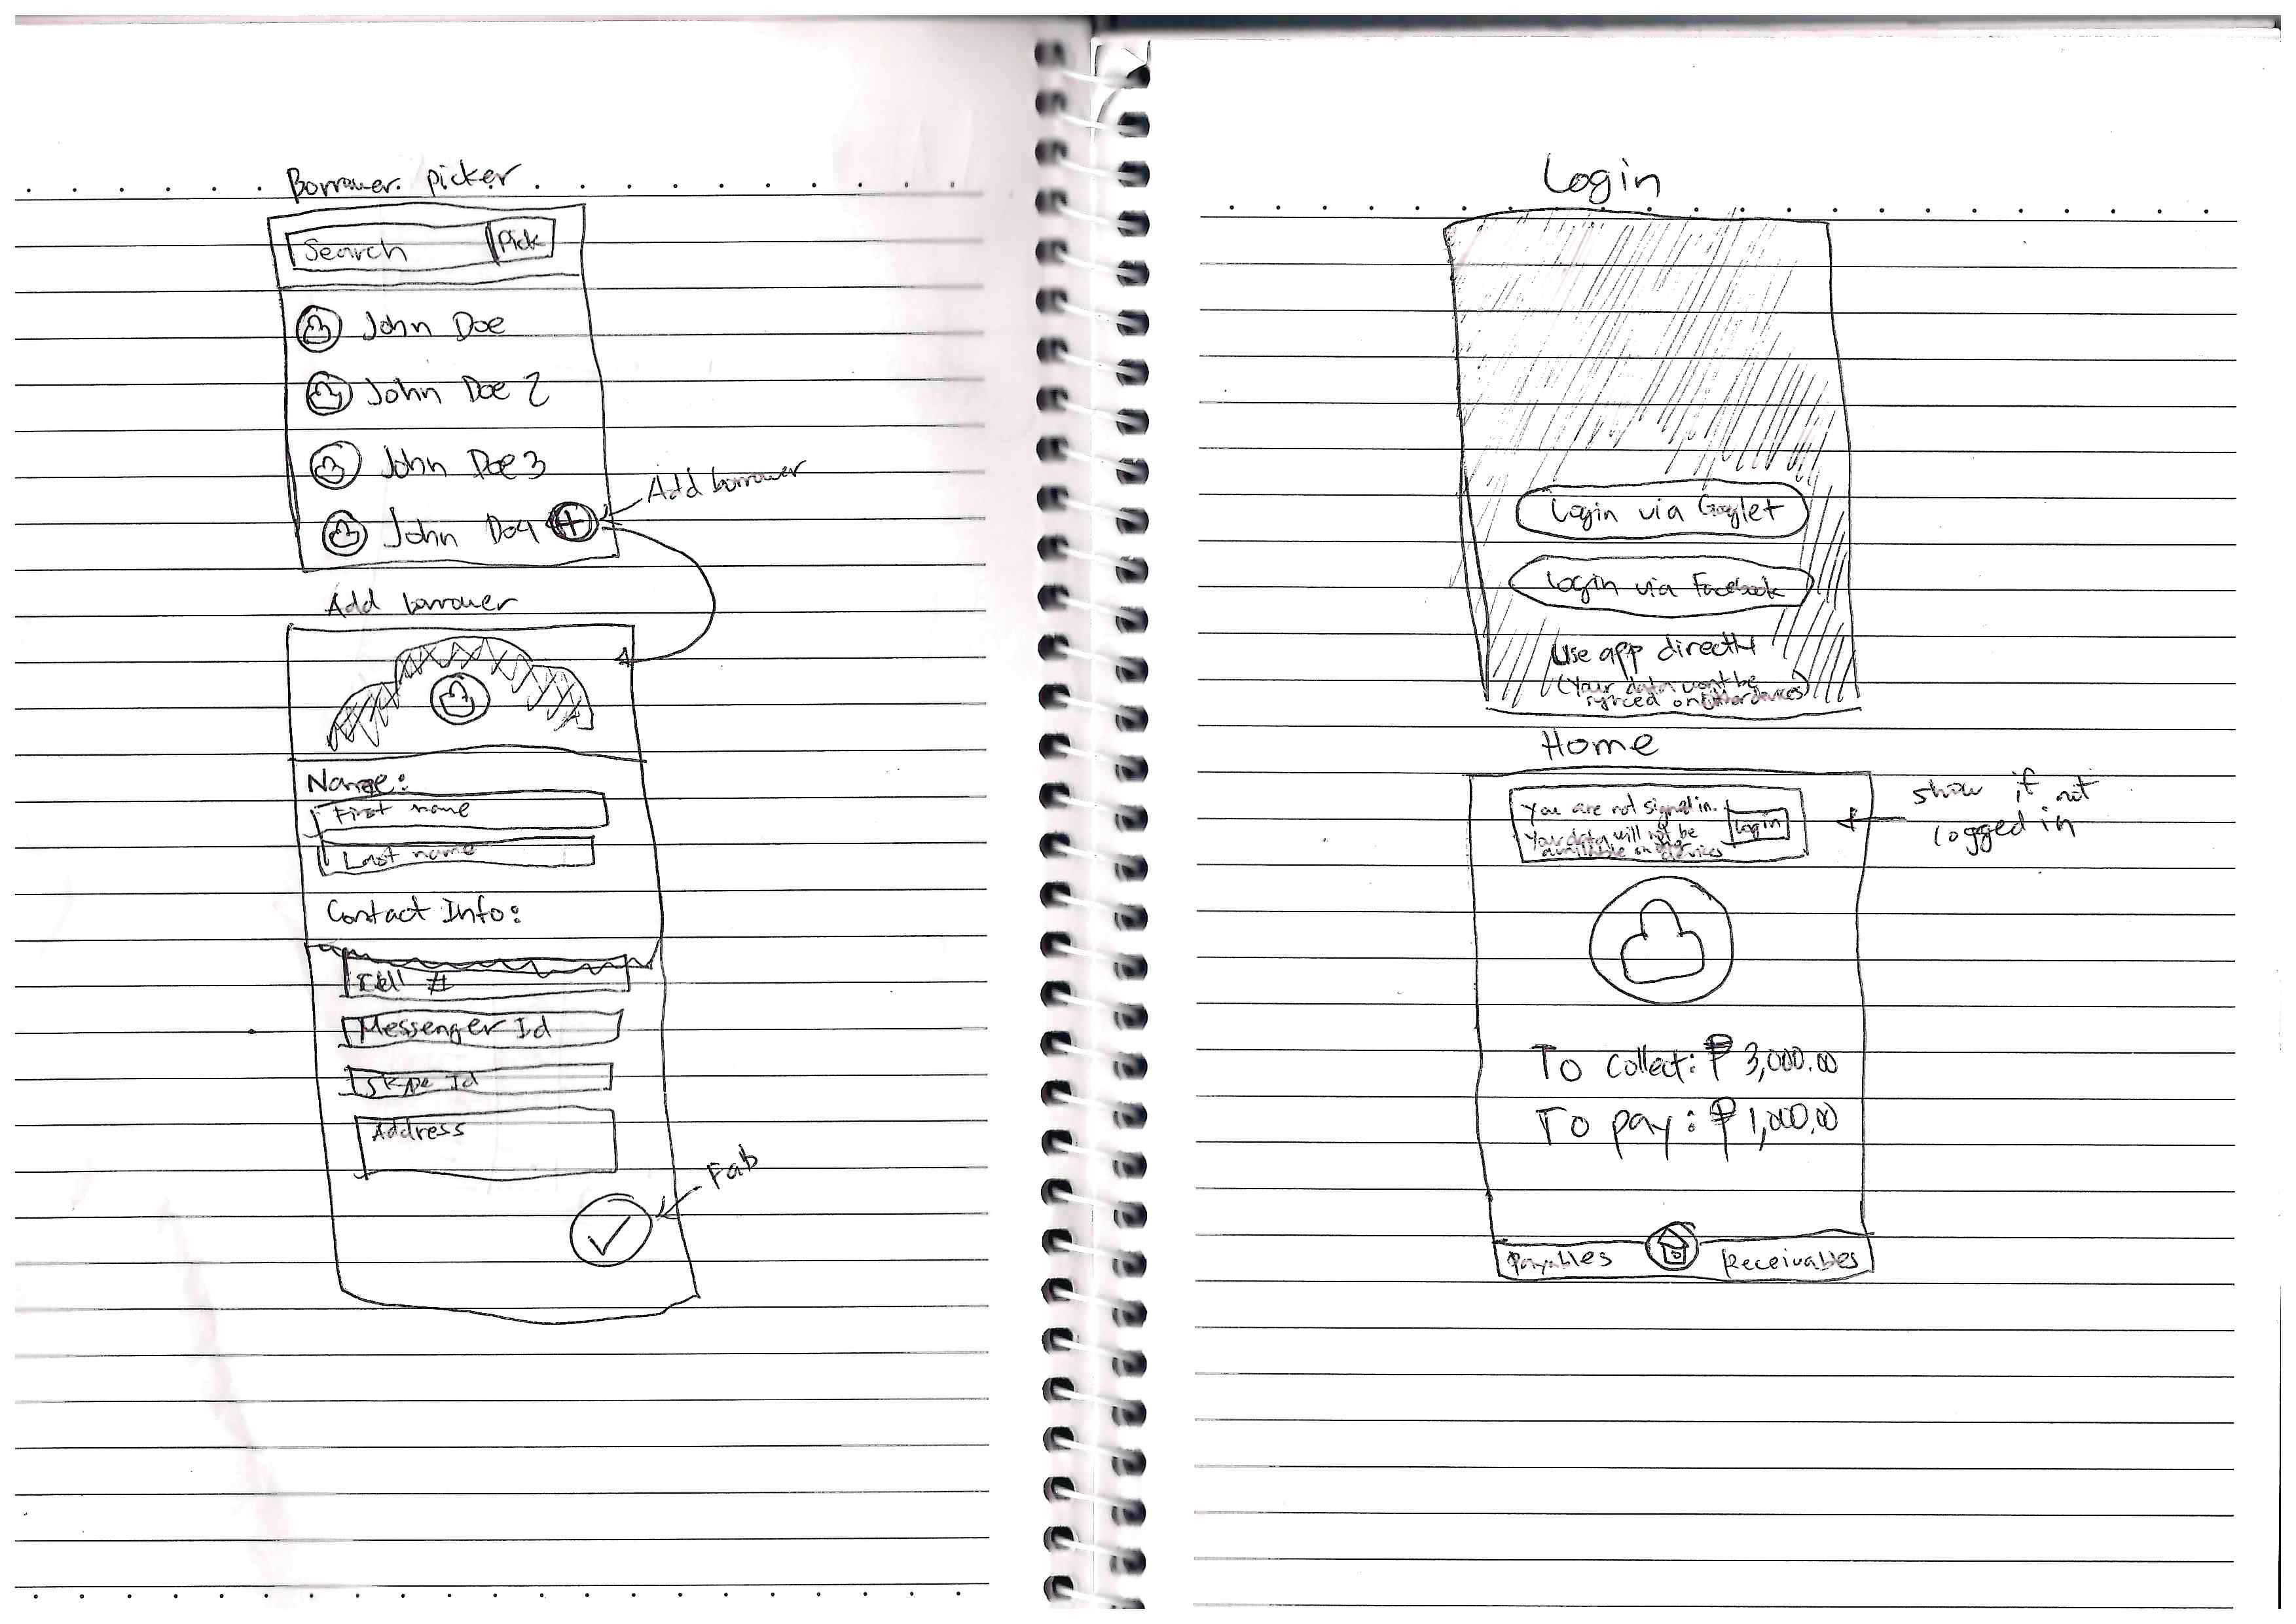 Borrower picker
Search Pick
John Doe
John Doe 2
John Doe 3
John Do4 +
Add borrower
Add borrower
Name:
First name
Last name
Contact Info:
Cell #
Messenger Id
Skype Id
Address
Fab
Login
Login via Google+
Login via Facebook
Use app directly
(Your data wont be
synced on other devices)
Home
You are not signed in.
Your data will not be
available on devices
Login
show if not
logged in
To collect: ₱ 3,000.00
To pay: ₱ 1,000.00
Payables Receivables